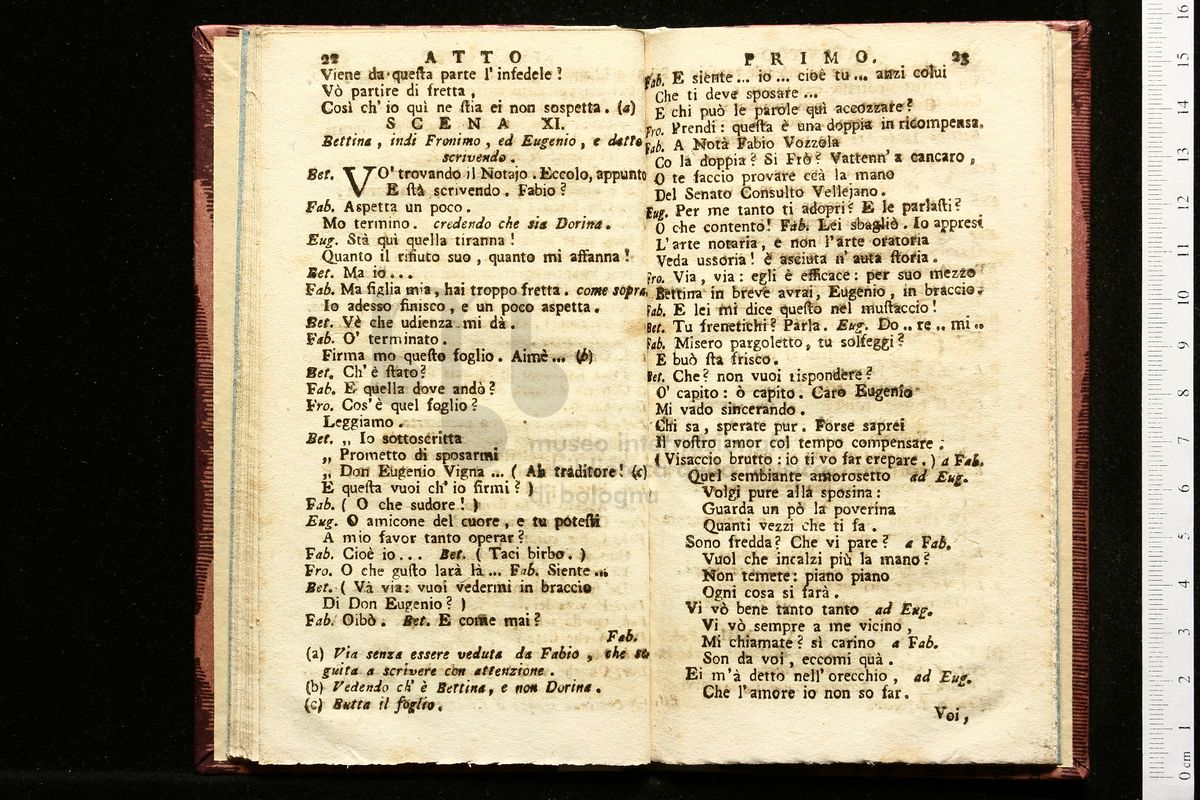 22 ATTO
Viene da questa parte l' infedele?
Vò partire di fretta,
Così ch' io quì ne stia ei non sospetta. (a)
SCENA XI.
Bettina, indi Fronimo, ed Eugenio, e detto
scrivendo.
Bet. VO' trovando il Notajo. Eccolo, appunto
E stà scrivendo. Fabio?
Fab. Aspetta un poco.
Mo termino. credendo che sia Dorina.
Eug. Stà quì quella tiranna!
Quanto il rifiuto suo, quanto mi affanna!
Bet. Ma io...
Fab. Ma figlia mia, hai troppo fretta. come sopra.
Io adesso finisco, e un poco aspetta.
Bet. Vè che udienza mi dà.
Fab. O' terminato.
Firma mo questo foglio. Aimè... (b)
Bet. Ch' è stato?
Fab. E quella dove andò?
Fro. Cos' è quel foglio?
Leggiamo.
Bet. „ Io sottoscritta
„ Prometto di sposarmi
„ Don Eugenio Vigna ... ( Ah traditore! (c)
E questa vuoi ch' io firmi? )
Fab. ( O che sudore! )
Eug. O amicone del cuore, e tu potesti
A mio favor tanto operar?
Fab. Cioè io... Bet. ( Taci birbo. )
Fro. O che gusto sarà là ... Fab. Siente ...
Bet. ( Va via: vuoi vedermi in braccio
Di Don Eugenio? )
Fab. Oibò. Bet. E come mai?
Fab.
(a) Via senza essere veduta da Fabio, che se
guita a scrivere con attenzione.
(b) Vedendo ch' è Bettina, e non Dorina.
(c) Butta il foglio.
PRIMO. 23
Fab. E siente ... io ... cioè tu ... anzi colui
Che ti deve sposare ...
E chi può le parole quì accozzare?
Fro. Prendi: questa è una doppia in ricompensa.
Fab. A Notà Fabio Vozzola
Co la doppia? Si Frò? Vattenn' a cancaro,
O te faccio provare ccà la mano
Del Senato Consulto Vellejano.
Eug. Per me tanto ti adopri? E le parlasti?
O che contento! Fab. Lei sbagliò. Io appresi
L' arte notaria, e non l' arte oratoria
Veda ussoria! è asciuta n' auta storia.
Fro. Via, via: egli è efficace: per suo mezzo
Bettina in breve avrai, Eugenio, in braccio.
Fab. E lei mi dice questo nel mustaccio!
Bet. Tu frenetichi? Parla. Eug. Do .. re .. mi ..
Fab. Misero pargoletto, tu solfeggi?
E buò sta frisco.
Bet. Che? non vuoi rispondere?
O' capito: ò capito. Caro Eugenio
Mi vado sincerando.
Chi sa, sperate pur. Forse saprei
Il vostro amor col tempo compensare:
( Visaccio brutto: io ti vo far crepare. ) a Fab.
Quel sembiante amorosetto ad Eug.
Volgi pure alla sposina:
Guarda un pò la poverina
Quanti vezzi che ti fa.
Sono fredda? Che vi pare? a Fab.
Vuol che incalzi più la mano?
Non temete: piano piano
Ogni cosa si farà.
Vi vò bene tanto tanto ad Eug.
Vi vò sempre a me vicino,
Mi chiamate? sì carino a Fab.
Son da voi, eccomi quà.
Ei m'à detto nell' orecchio, ad Eug.
Che l'amore io non so far.
Voi,
museo
di bologna
0 cm 1 2 3 4 5 6 7 8 9 10 11 12 13 14 15 16